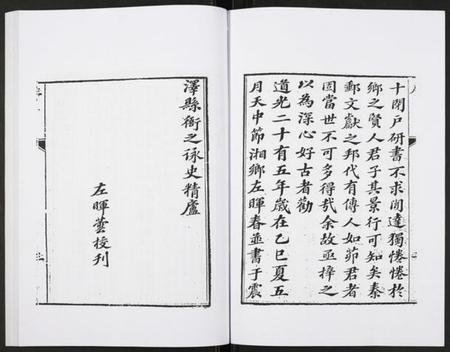 十閉戶研書不求聞達獨惓惓於
鄉之賢人君子其景行可知矣秦
郵文獻之邦代有傳人如茆君者
固當世不可多得哉余故亟梓之
以為深心好古者勸
道光二十有五年歲在乙巳夏五
月天中節湘鄉左暉春並書于震
澤縣衙之詠史精廬
左暉春校刊